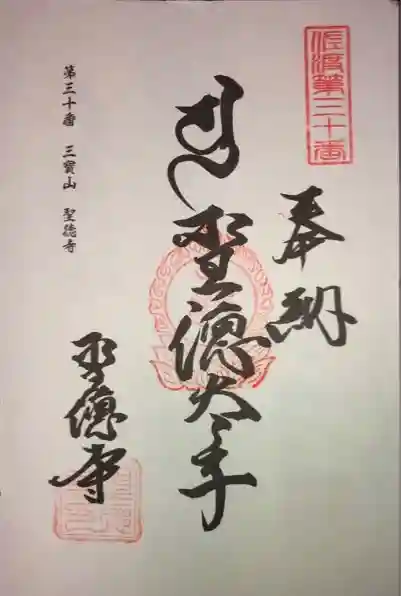 佐渡第三十番
奉納
聖徳太子
聖徳寺
第三十番 三寳山 聖徳寺